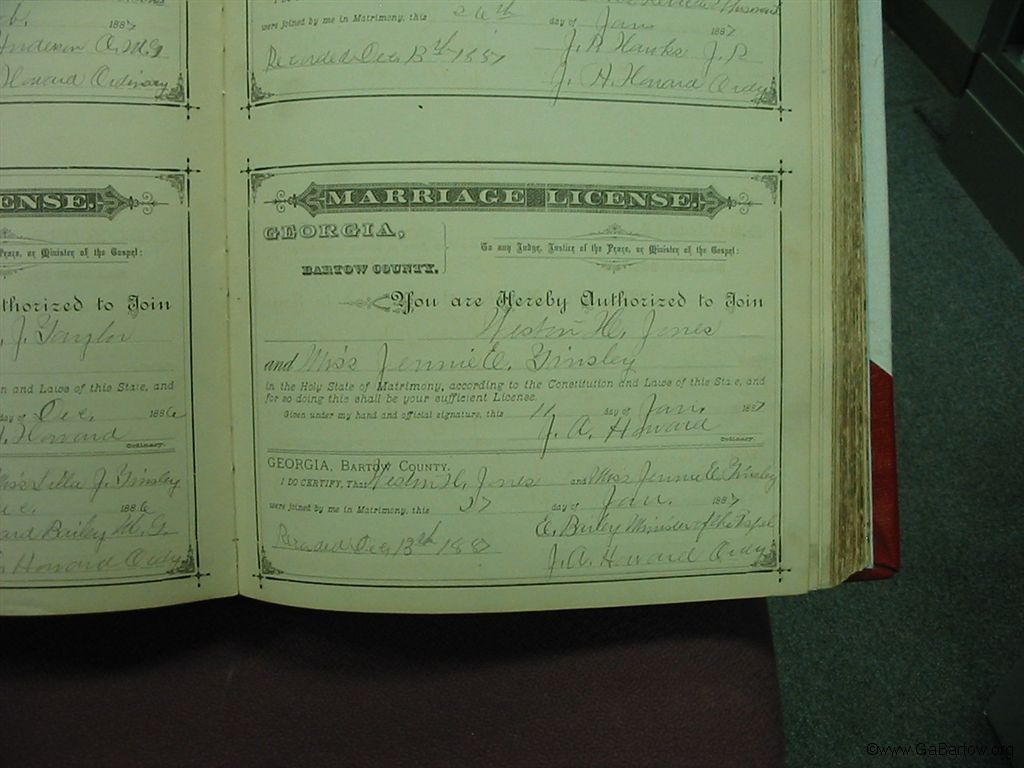 b. 1887
Anderson
Howard Ordinary
ENSE.
Peace, or Minister of the Gospel:
thorized to Join
J. Taylor
n and Laws of this State, and
day of Dec. 1886
Howard
Ordinary.
Miss Lilla J. Tinsley
1886
Bailey M. G.
Howard Ordy
were joined by me in Matrimony, this 26th day of Jan 1887
Recorded Dec. 13th 1887 J. R. Hanks J. P.
J. A. Howard Ordy
MARRIAGE LICENSE.
GEORGIA,
BARTOW COUNTY.
To any Judge, Justice of the Peace, or Minister of the Gospel:
You are Hereby Authorized to Join
Weston H. Jones
and Miss Jennie E. Tinsley
in the Holy State of Matrimony, according to the Constitution and Laws of this State, and
for so doing this shall be your sufficient License.
Given under my hand and official signature, this 11 day of Jan. 1887
J. A. Howard
Ordinary.
GEORGIA, BARTOW COUNTY.
I DO CERTIFY, That Weston H. Jones and Miss Jennie E. Tinsley
were joined by me in Matrimony, this day of Jan. 1887
Minister of the Gospel
Recorded Dec. 13th 1887
J. A. Howard Ordy
©www.GaBartow.org